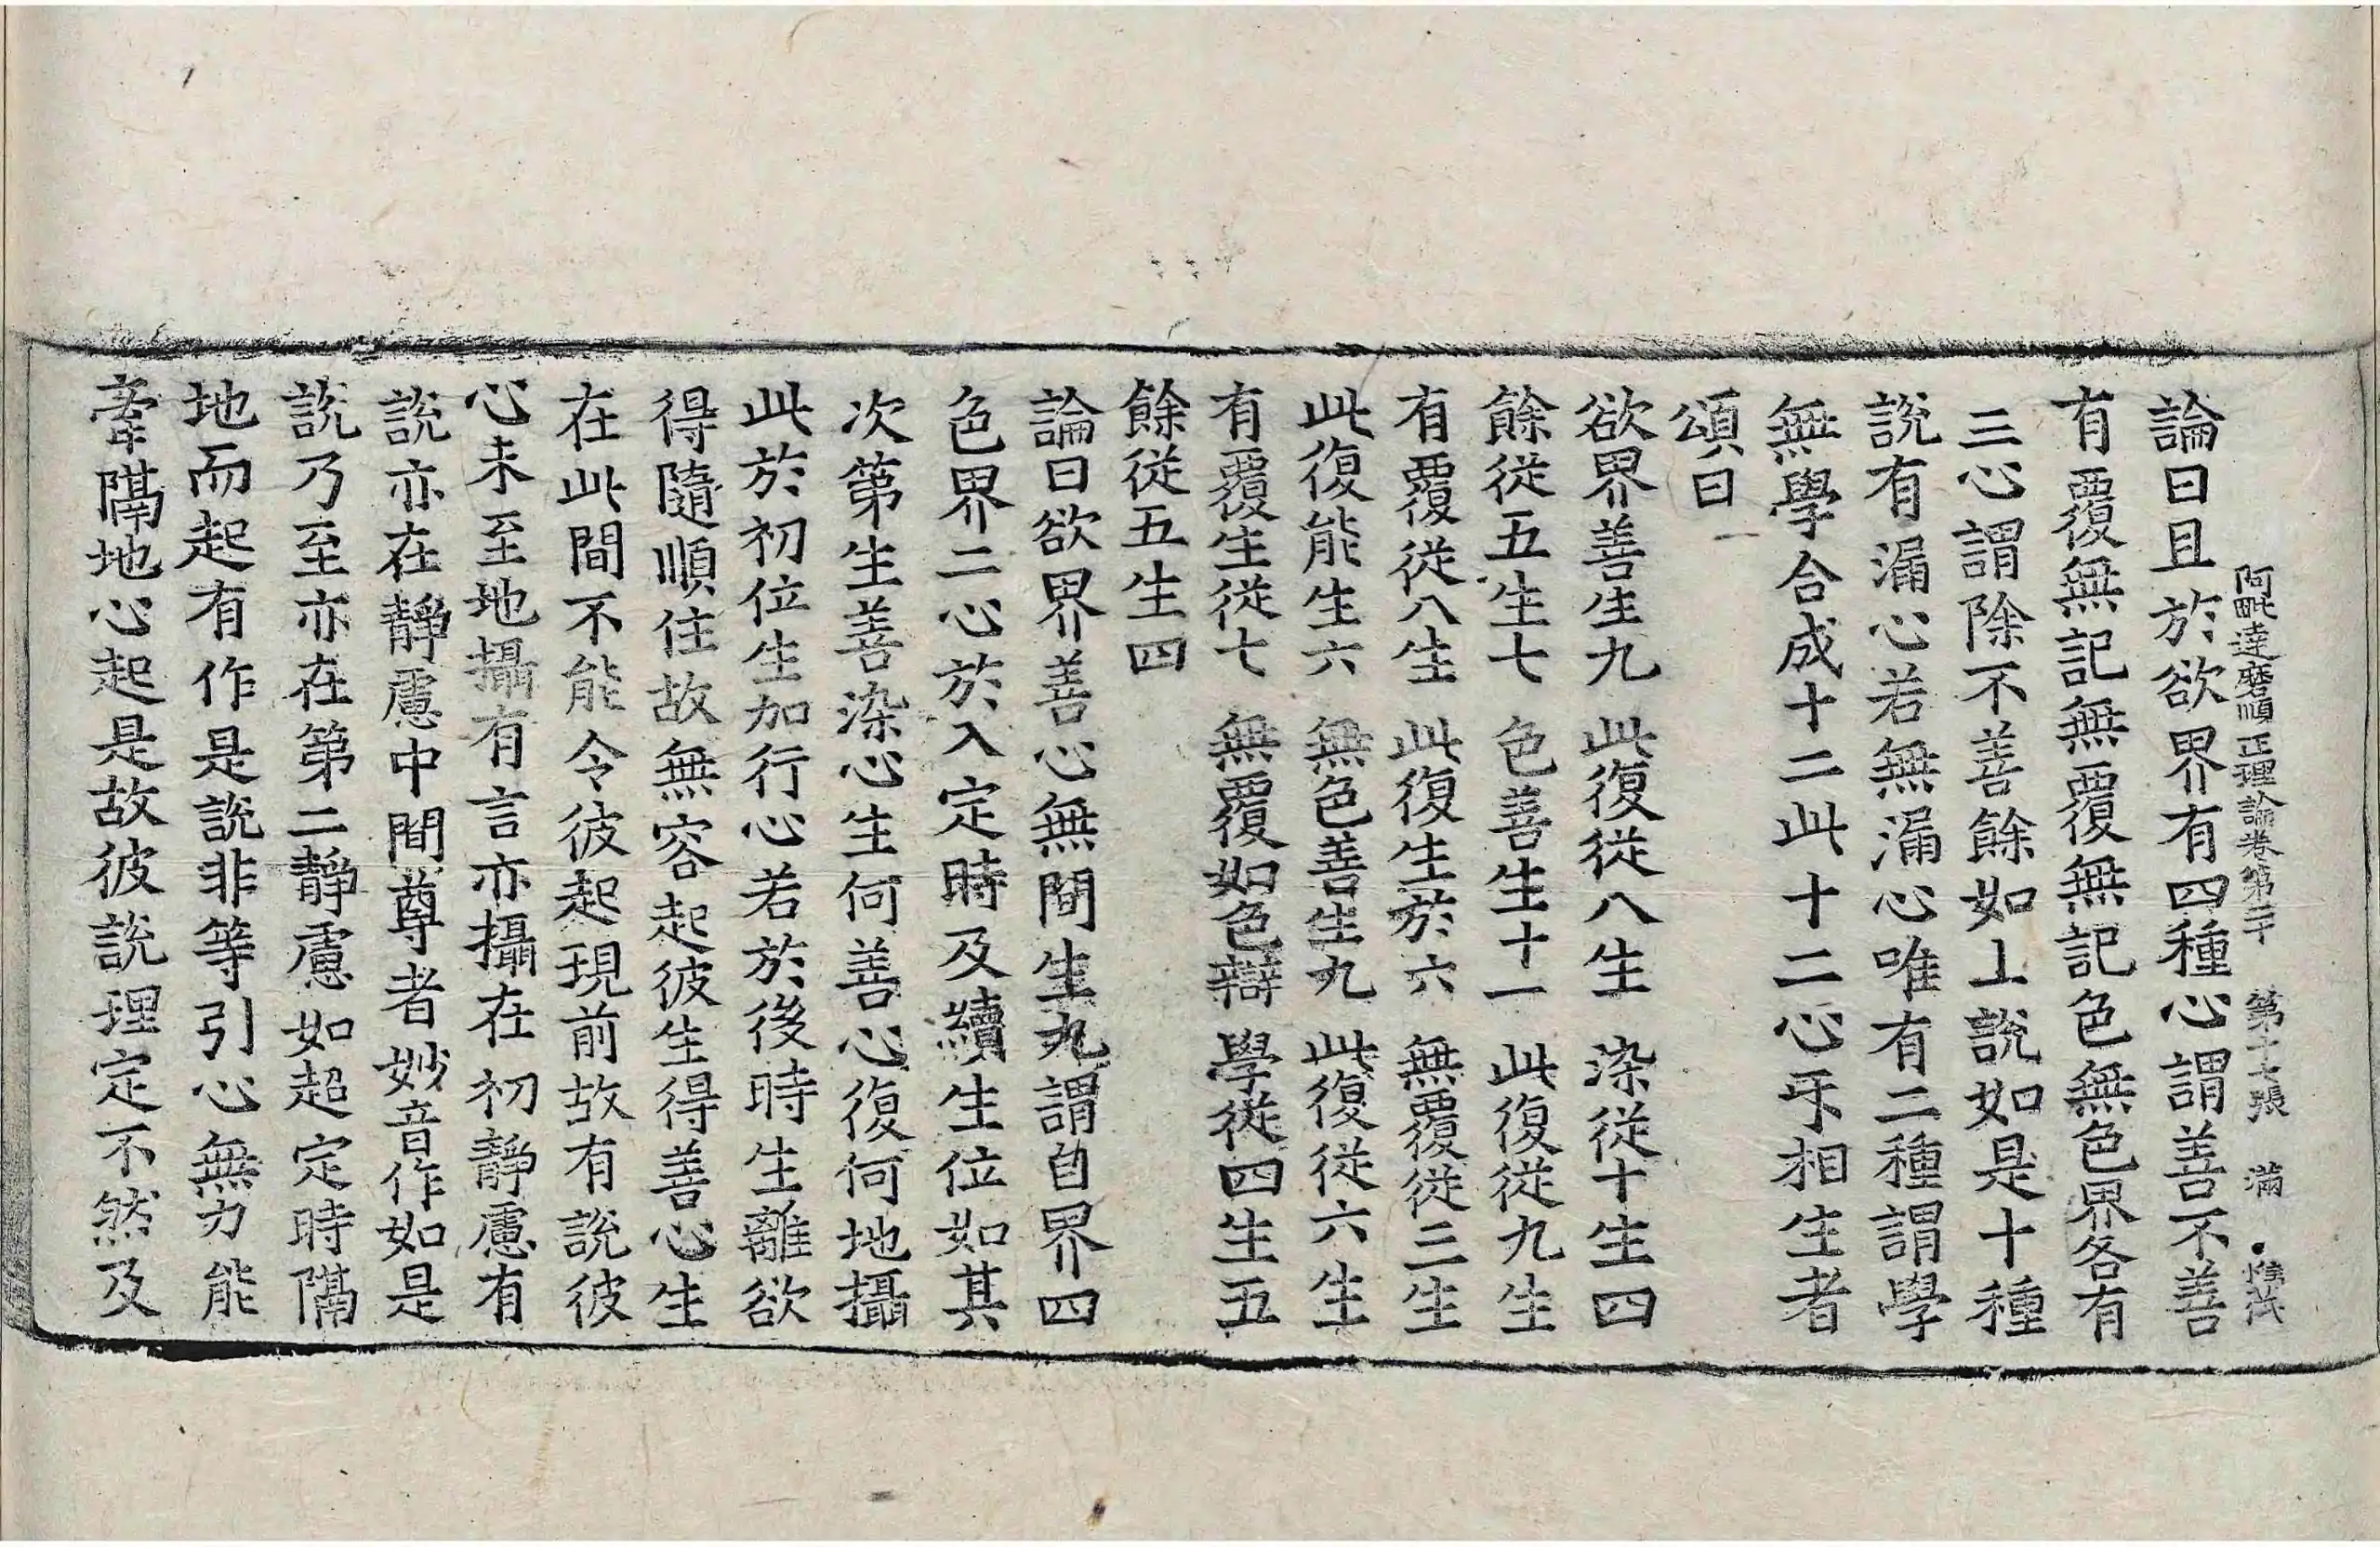 阿毗達磨順正理論卷第二十 第十七張 滿
論曰且於欲界有四種心謂善不善
有覆無記無覆無記色無色界各有
三心謂除不善餘如上說如是十種
說有漏心若無漏心唯有二種謂學
無學合成十二此十二心㸦相生者
頌曰
欲界善生九 此復從八生 染從十生四
餘從五生七 色善生十一 此復從九生
有覆從八生 此復生於六 無覆從三生
此復能生六 無色善生九 此復從六生
有覆生從七 無覆如色辯 學從四生五
餘從五生四
論曰欲界善心無間生九謂自界四
色界二心於入定時及續生位如其
次第生善染心生何善心復何地攝
此於初位生加行心若於後時生離欲
得隨順住故無容起彼生得善心生
在此間不能令彼起現前故有說彼
心未至地攝有言亦攝在初靜慮有
說亦在靜慮中間尊者妙音作如是
說乃至亦在第二靜慮如超定時隔
地而起有作是說非等引心無力能
牽隔地心起是故彼說理定不然及